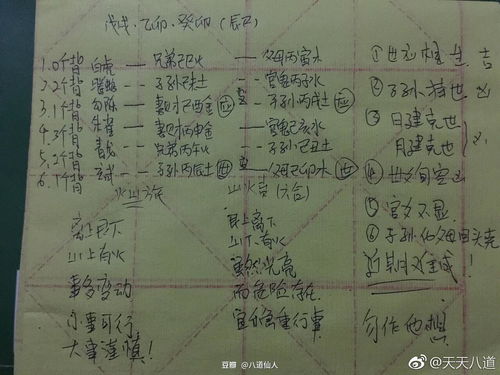 戊戌.乙卯.癸卯(辰巳)
1.0个背 白虎 — 兄弟己巳火 — 父母丙寅木
2.2个背 螣蛇 -- 子孙己未土 -- 官鬼丙子水
3.1个背 勾陈 — 妻财己酉金 应 -- 子孙丙戌土 应
4.3个背 朱雀 — 妻财丙申金 — 官鬼己亥水
5.2个背 青龙 -- 兄弟丙午火 -- 子孙己丑土
6.1个背 玄武 -- 子孙丙辰土 世 — 父母己卯木 世
火山旅
山火贲(六合)
离上艮下
山上有火
事多变动
小事可行
大事谨慎!
艮上离下
山下有火
虽然光亮
而危险存在
宜慎重行事
①世应相生.吉
②子孙持世凶
③日建克世
月建克世 凶
④世爻旬空凶
⑤官爻不显.
⑥子孙化父母回头克
近期难成!
勿作他想
豆瓣 @八道仙人
@天天八道